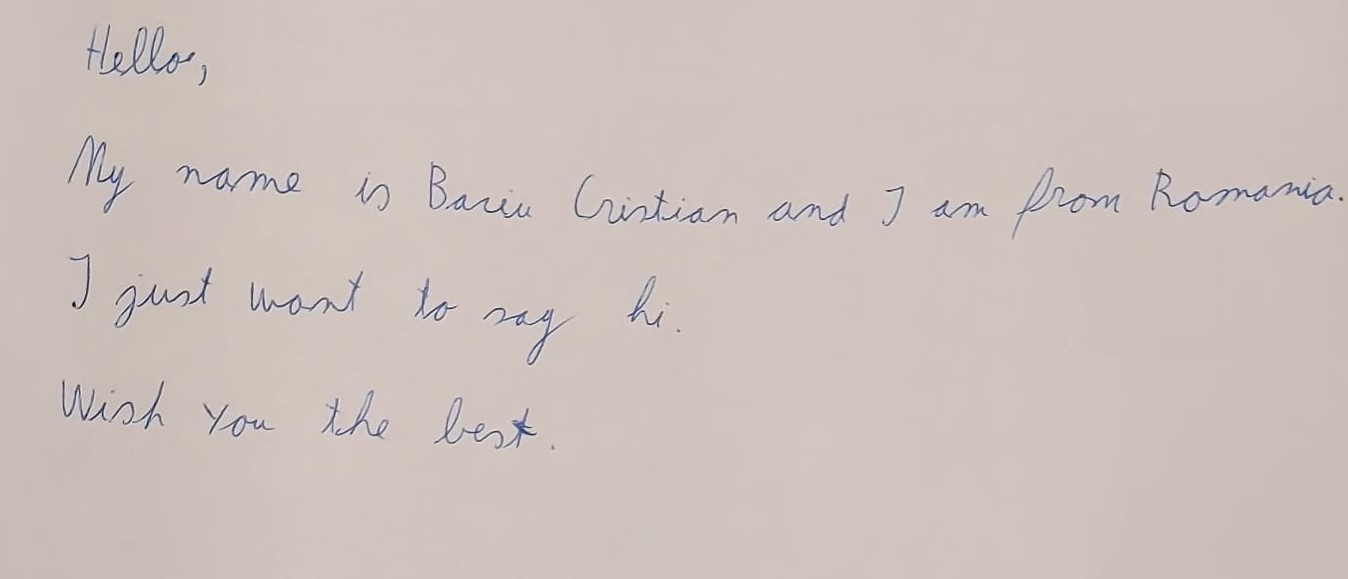 Hello,
My name is Baciu Cristian and I am from Romania.
I just want to say hi.
Wish you the best.